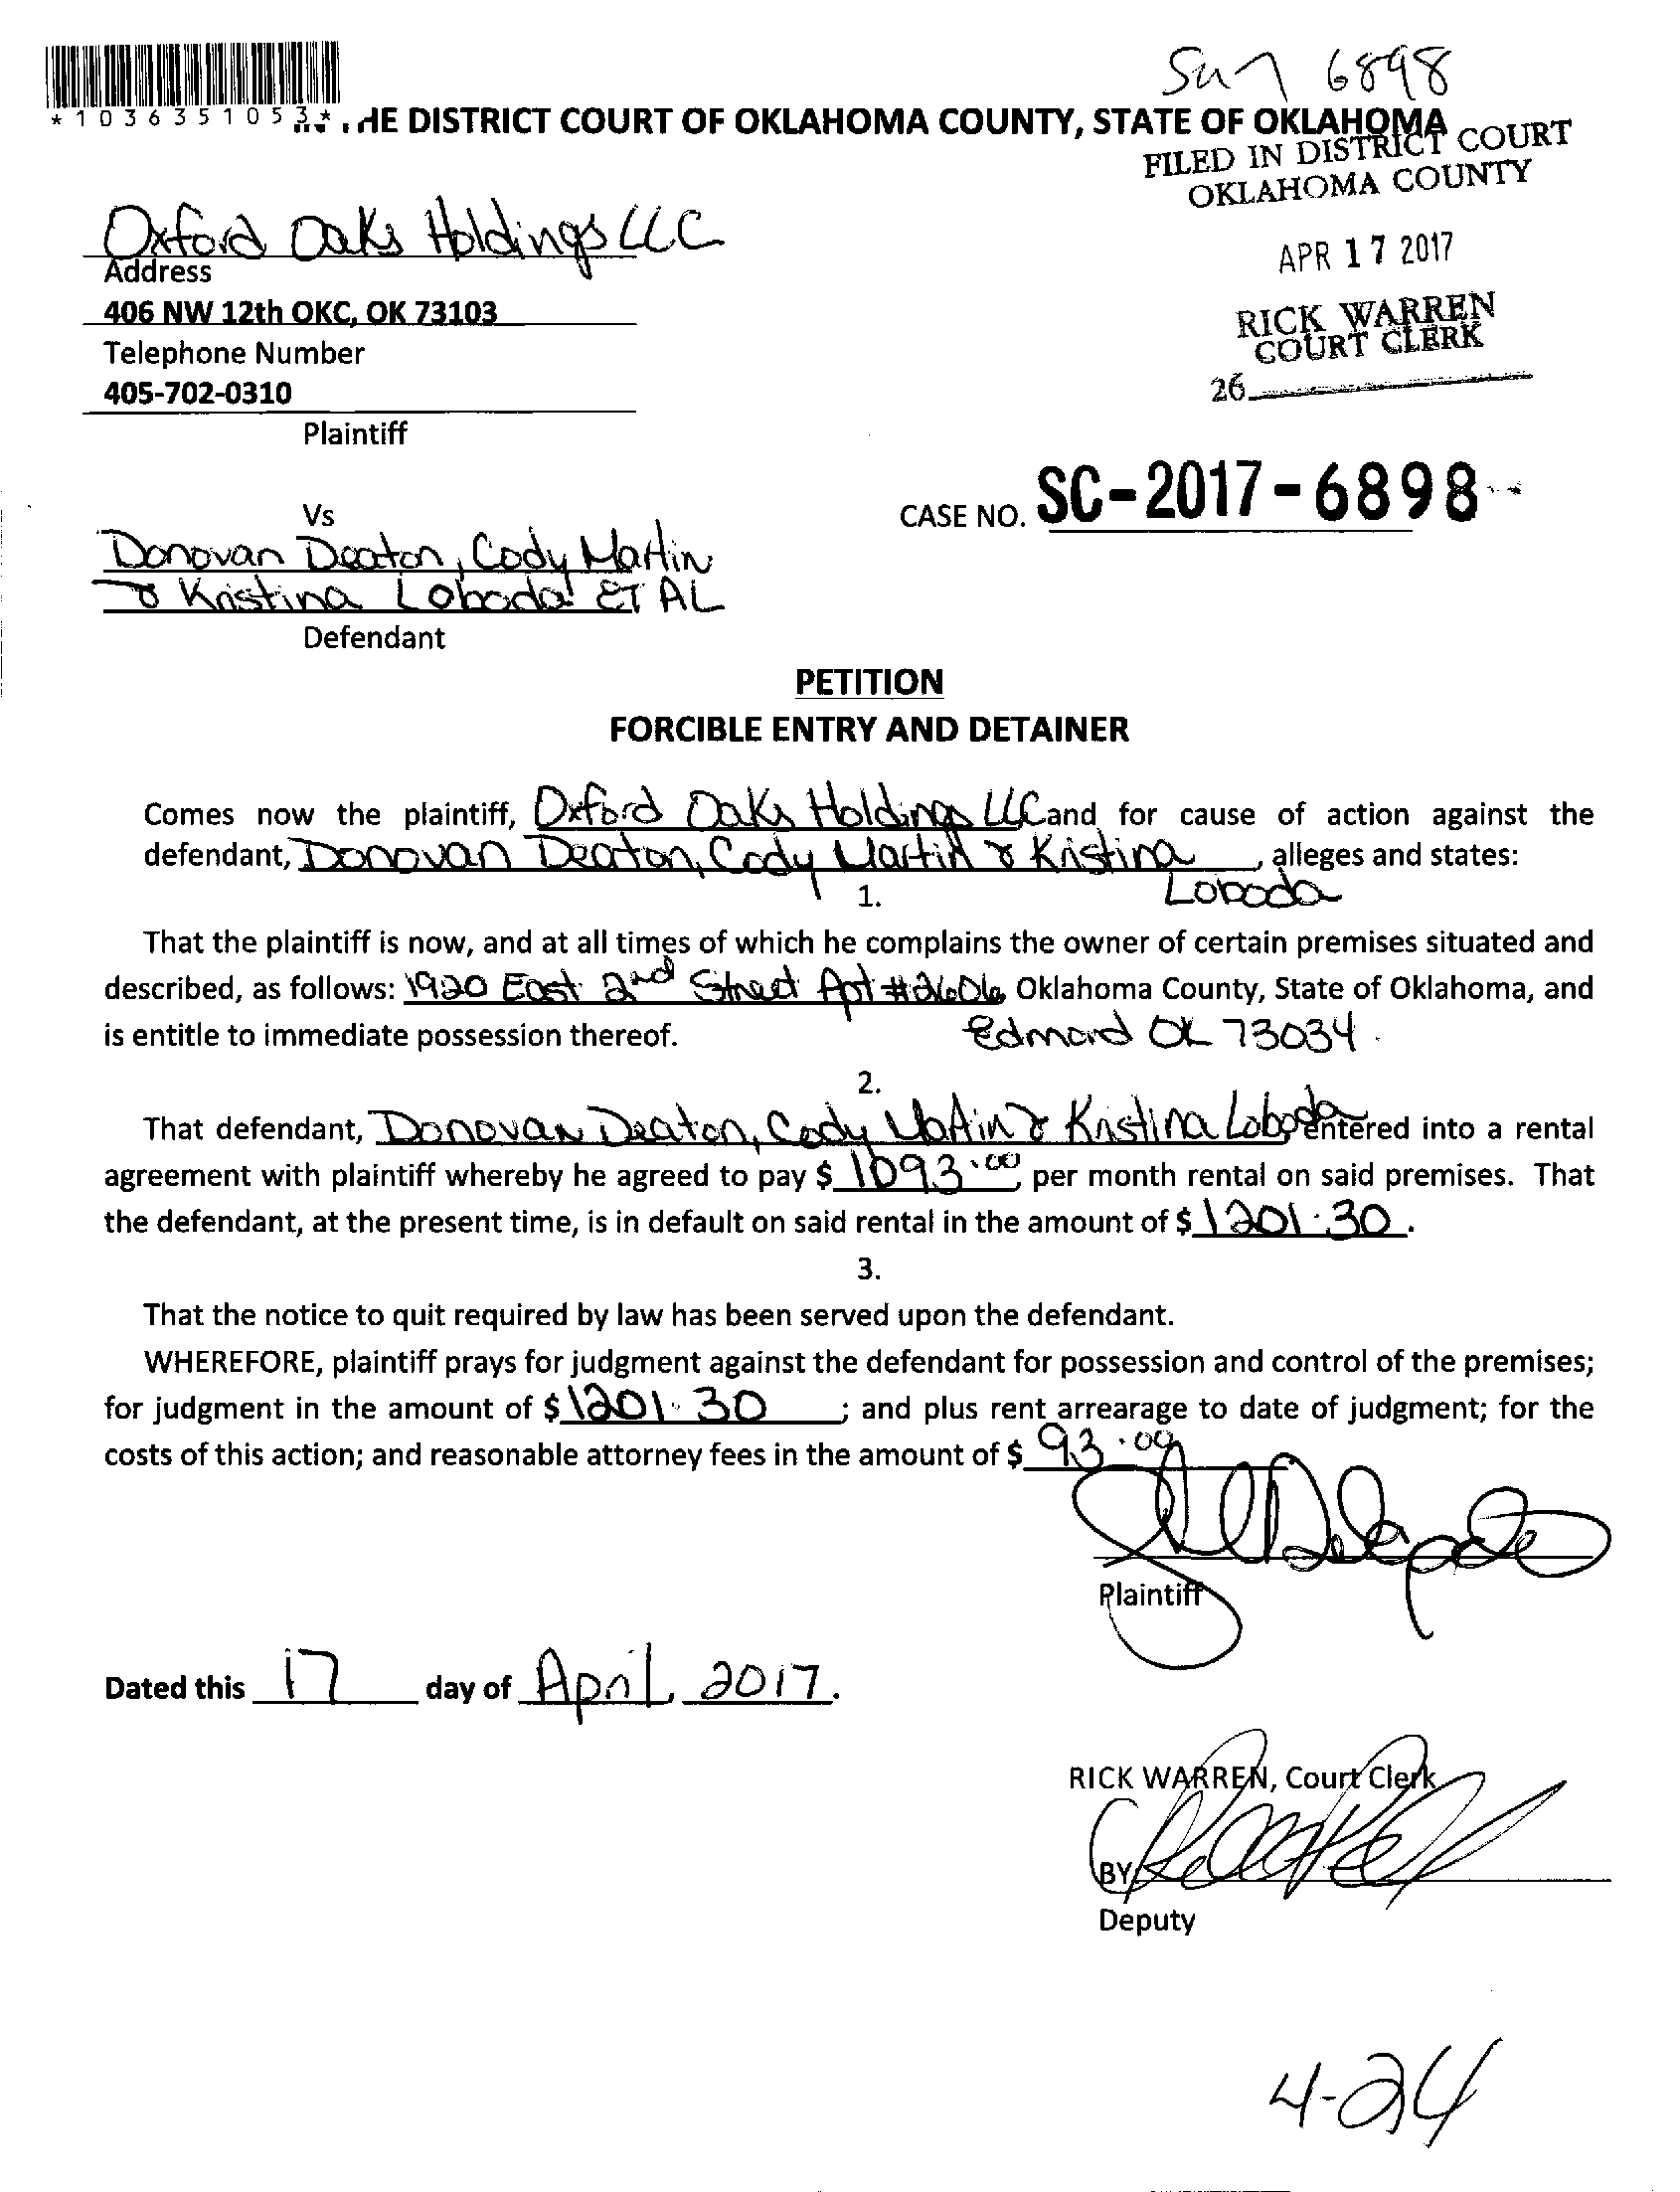 6898
*1036351053* HE DISTRICT COURT OF OKLAHOMA COUNTY, STATE OF OKLAHOMA
FILED IN DISTRICT COURT
OKLAHOMA COUNTY
Oxford Oaks Holdings LLC
APR 17 2017
Address
406 NW 12th OKC, OK 73103
RICK WARREN
COURT CLERK
Telephone Number
26
405-702-0310
Plaintiff
CASE NO. SC-2017-6898
Vs
Donovan Deaton, Cody Martin
& Kristina Loboda ET AL
Defendant
PETITION
FORCIBLE ENTRY AND DETAINER
Comes now the plaintiff, Oxford Oaks Holdings LLC and for cause of action against the
defendant, Donovan Deaton, Cody Martin & Kristina , alleges and states:
Loboda
1.
That the plaintiff is now, and at all times of which he complains the owner of certain premises situated and
described, as follows: 1920 East 2nd Street Apt #2606, Oklahoma County, State of Oklahoma, and
is entitle to immediate possession thereof. Edmond OK 73034.
2.
That defendant, Donovan Deaton, Cody Martin & Kristina Loboda entered into a rental
agreement with plaintiff whereby he agreed to pay $ 1093.00 per month rental on said premises. That
the defendant, at the present time, is in default on said rental in the amount of $ 1201.30.
3.
That the notice to quit required by law has been served upon the defendant.
WHEREFORE, plaintiff prays for judgment against the defendant for possession and control of the premises;
for judgment in the amount of $ 1201.30 ; and plus rent arrearage to date of judgment; for the
costs of this action; and reasonable attorney fees in the amount of $ 93.00
Plaintiff
Dated this 17 day of April, 2017.
RICK WARREN, Court Clerk
BY
Deputy
4-24